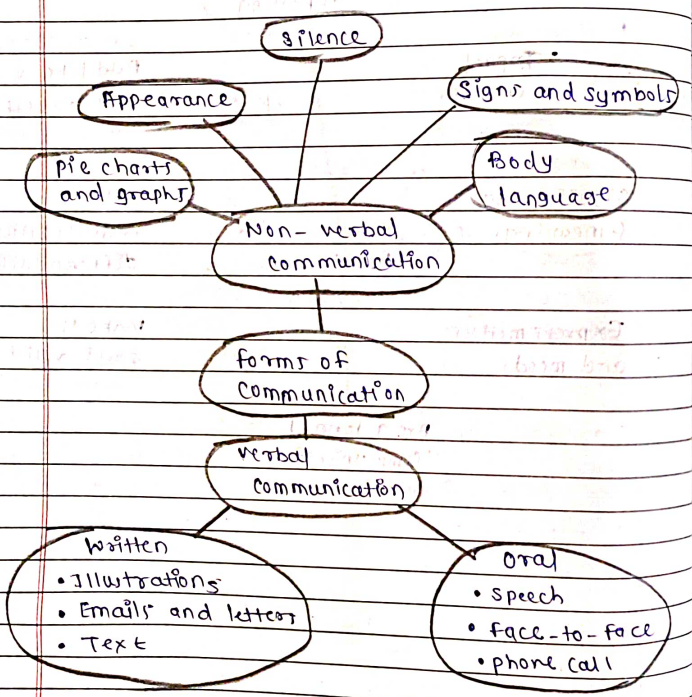 Silence
Appearance
Signs and symbols
Pie charts
and graphs
Body
language
Non-verbal
communication
forms of
communication
verbal
communication
Written
• Illustrations
• Emails and letters
• Text
Oral
• Speech
• face-to-face
• phone call